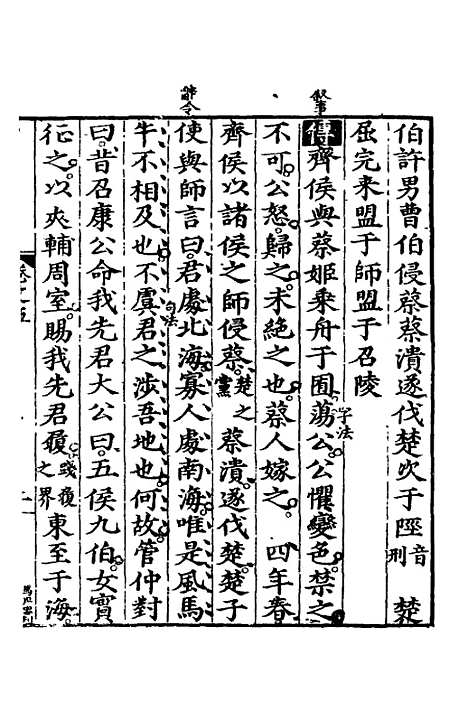 敘事
辭令
伯許男曹伯侵蔡蔡潰遂伐楚次于陘音刑 楚
屈完來盟于師盟于召陵
傳齊侯與蔡姬乘舟于囿蕩公字法公懼變色禁之
不可公怒歸之未絕之也蔡人嫁之 四年春
齊侯以諸侯之師侵蔡楚之黨蔡潰遂伐楚楚子
使與師言曰君處北海寡人處南海唯是風馬
牛不相及也不虞句法君之涉吾地也何故管仲對
曰昔召康公命我先君大公曰五侯九伯女實
征之以夾輔周室賜我先君履踐履之界東至于海
卷之五